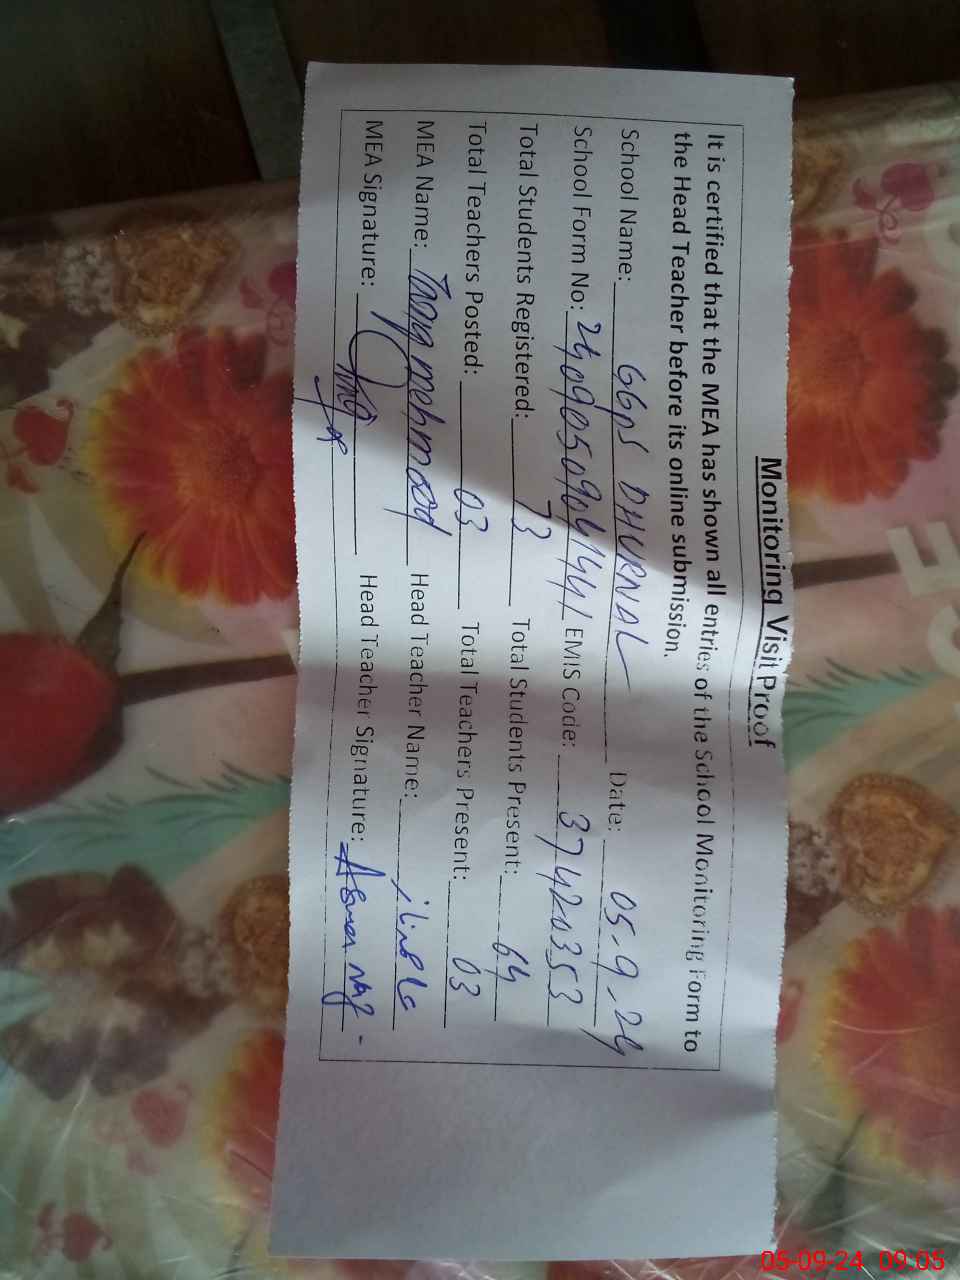 Monitoring Visit Proof
It is certified that the MEA has shown all entries of the School Monitoring Form to
the Head Teacher before its online submission.
School Name: GGPS DHURNAL Date: 05-9-24
School Form No: EMIS Code: 37420353
Total Students Registered: 73 Total Students Present: 64
Total Teachers Posted: 03 Total Teachers Present: 03
MEA Name: Tariq mehmood Head Teacher Name:
MEA Signature: Head Teacher Signature: Asma
05-09-24 09:05